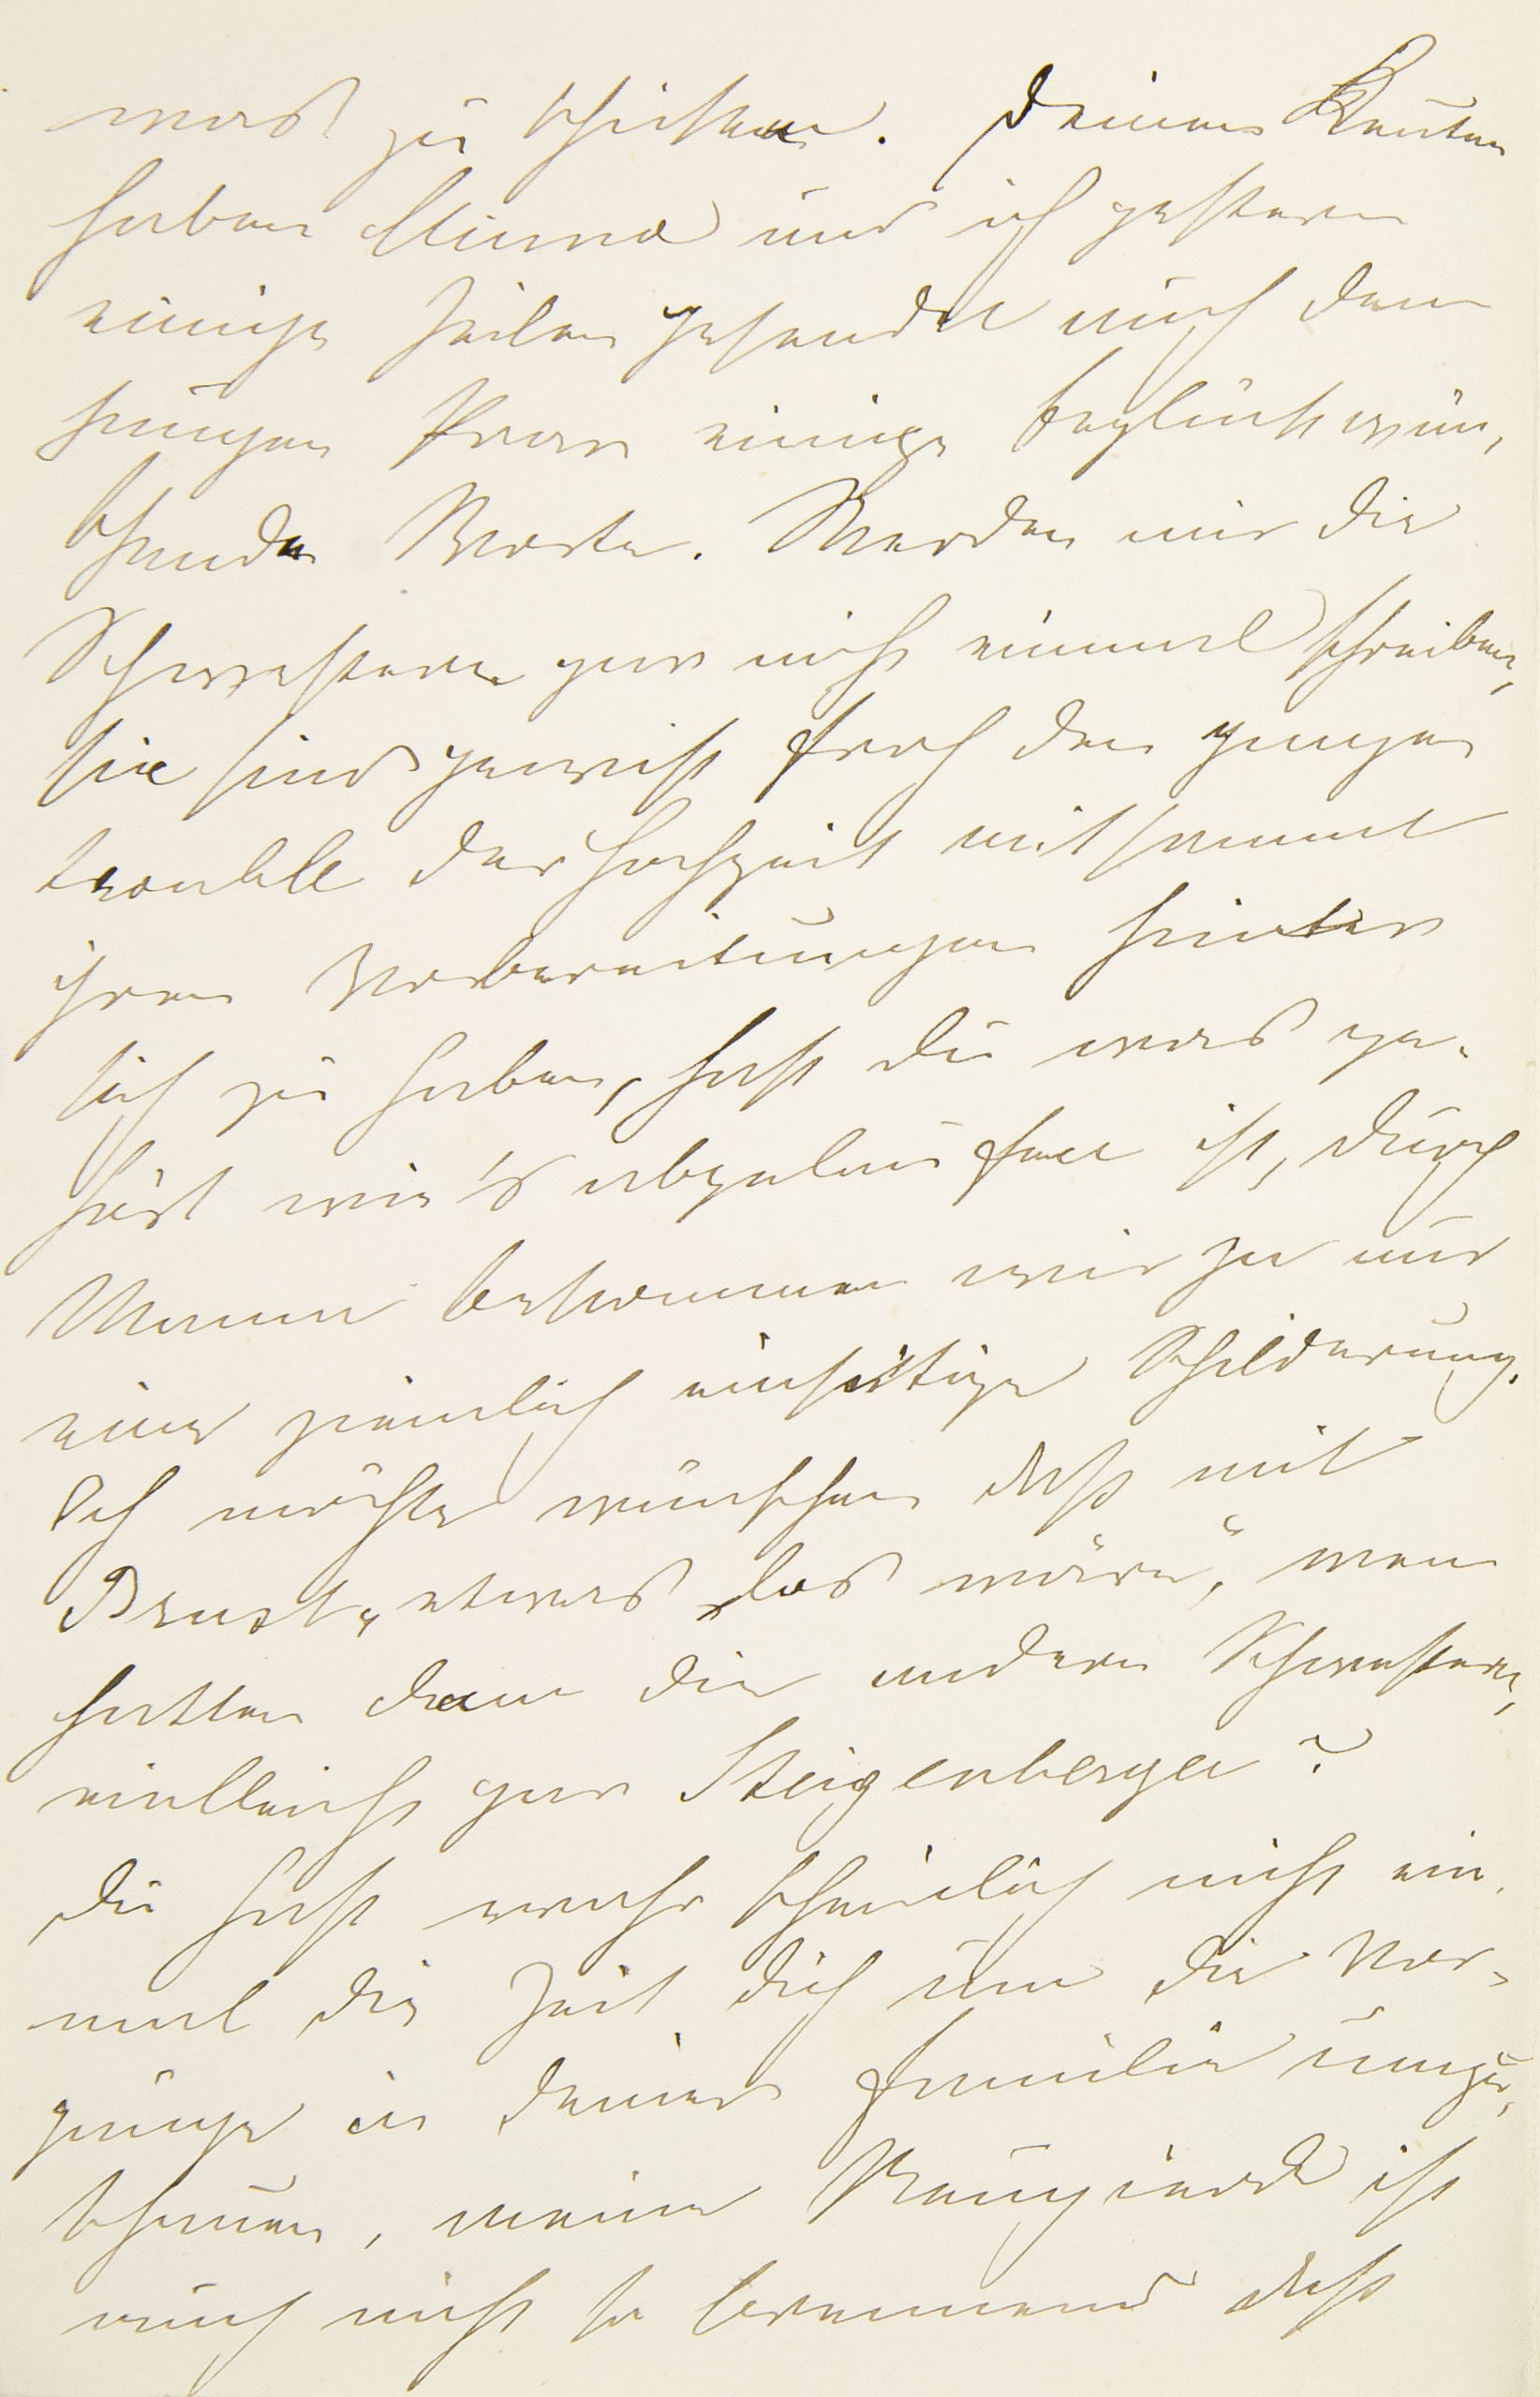 was zu schicken. Deinen Leuten
haben Minna und ich gestern
einige Zeilen gesendet auch dem
jungen Paar einige beglückwün,
schende Worte. Werden mir die
Schwestern gar nicht einmal schreiben,
sie sind gewiß froh den ganzen
trouble der Hochzeit mitsammt
ihren Vorbereitungen hinter
sich zu haben, hast du was ge-
hört wie's abgelaufen ist, durch
Mama bekommen wir ja nur
eine ziemlich einseitige Schilderung.
Ich möchte wünschen daß mit
Brust „etwas los wäre", wen
hätten denn die andern Schwestern,
vielleicht gar Steigenberger?
Du hast wahrscheinlich nicht ein,
mal die Zeit dich um die Vor-
gänge in deiner Familie umzu,
schauen, meine Neugierde ist
auch nicht so brennend daß